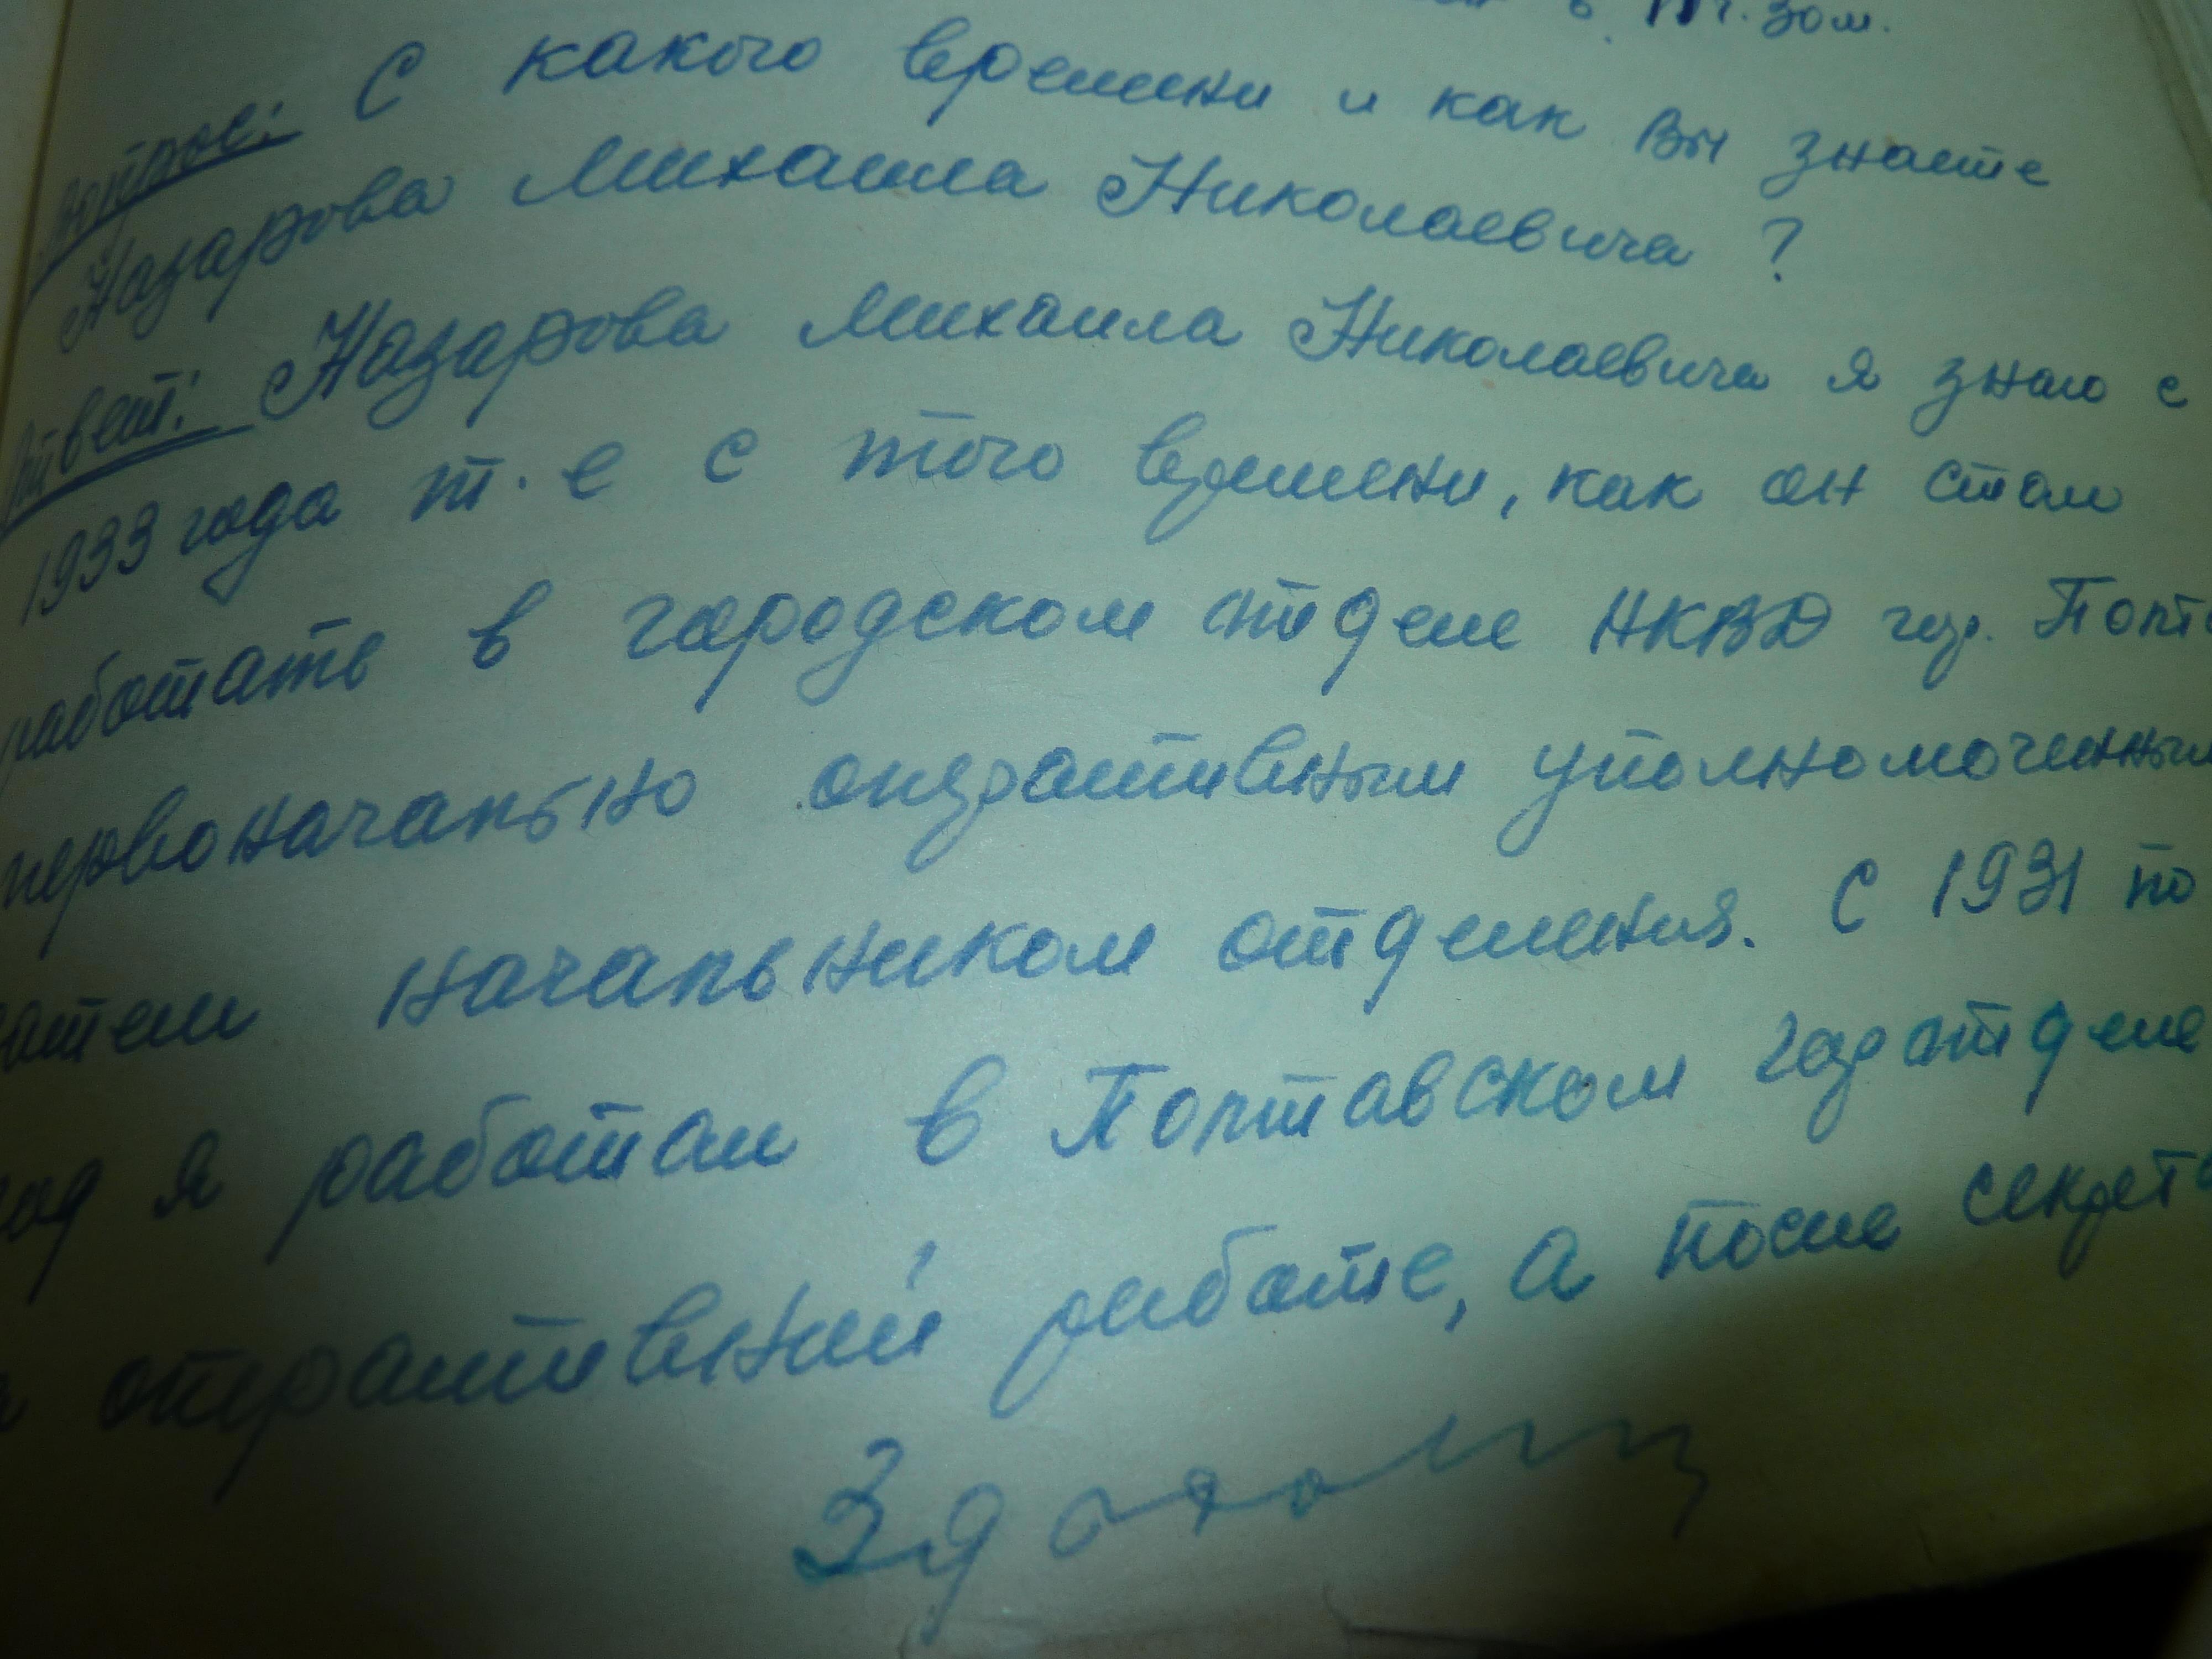 Вопрос: С какого времени и как Вы знаете
Назарова Михаила Николаевича ?
Ответ: Назарова Михаила Николаевича я знаю с
1933 года т. е с того времени, как он стал
работать в городском отделе НКВД гор. Полта
первоначально оперативным уполномоченным
затем начальником отделения. С 1931 по
год я работал в Полтавском горотделе
оперативной работе, а после секрет